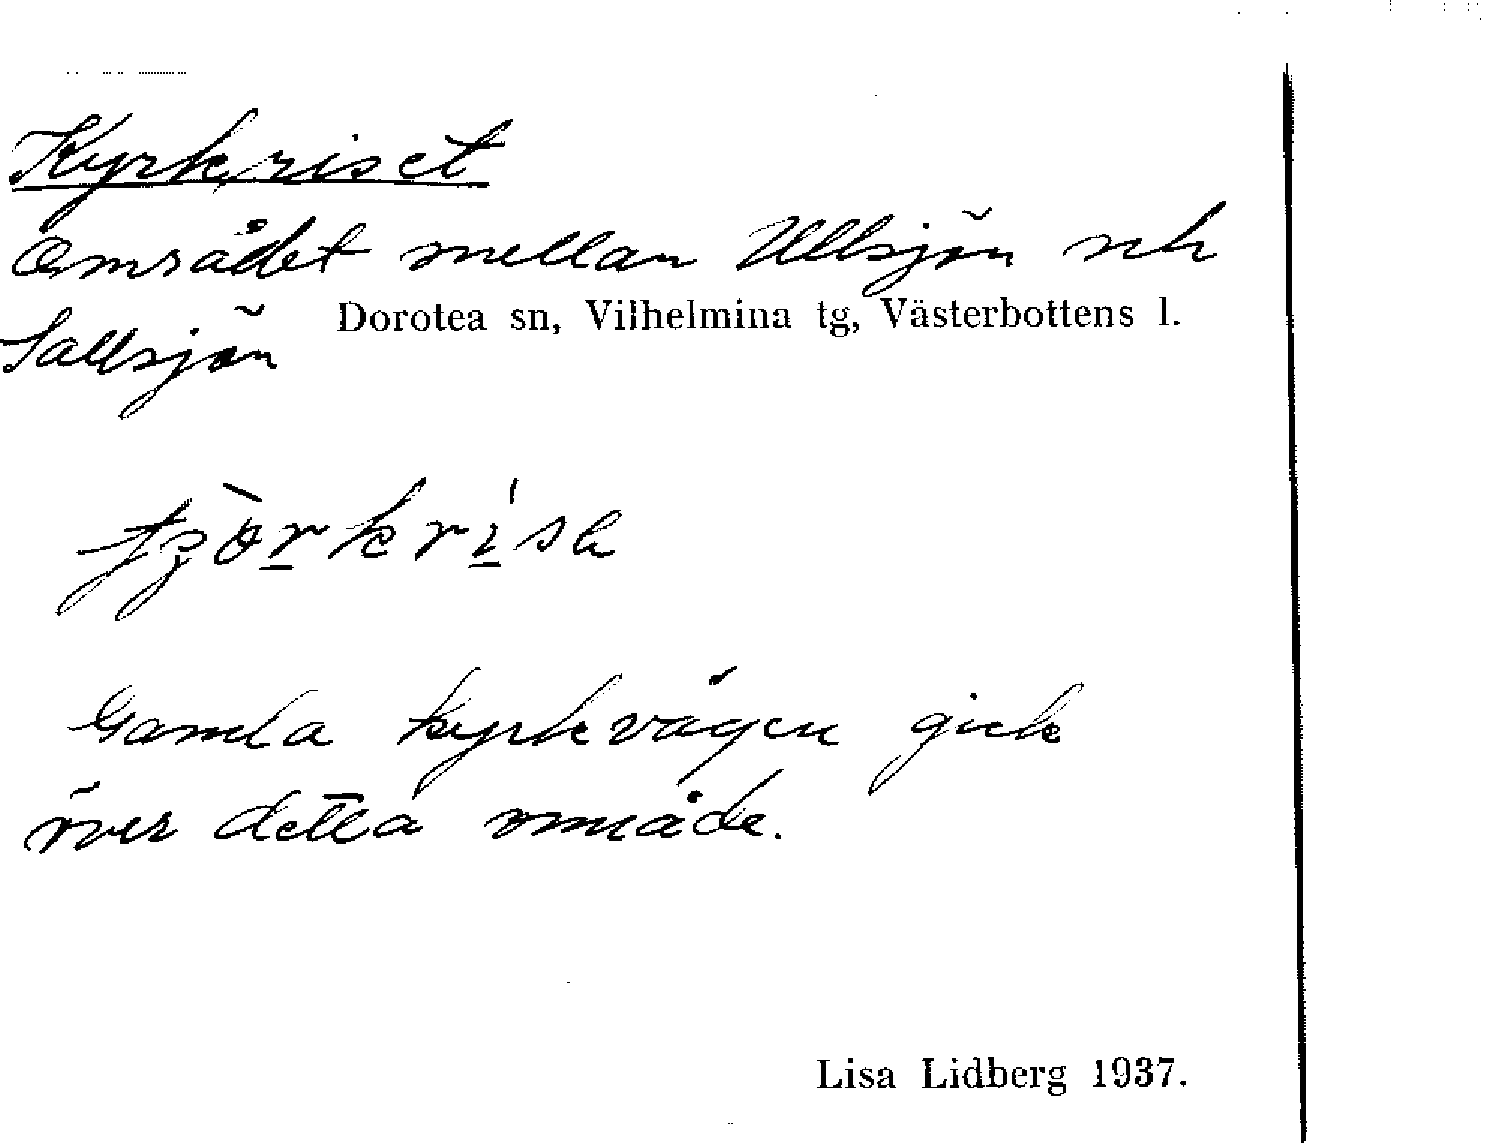 Kyrkriset
Området mellan Ullsjön och
Dorotea sn, Vilhelmina tg, Västerbottens l.
Sallsjön
Gamla kyrkvägen gick
över detta område.
Lisa Lidberg 1937.